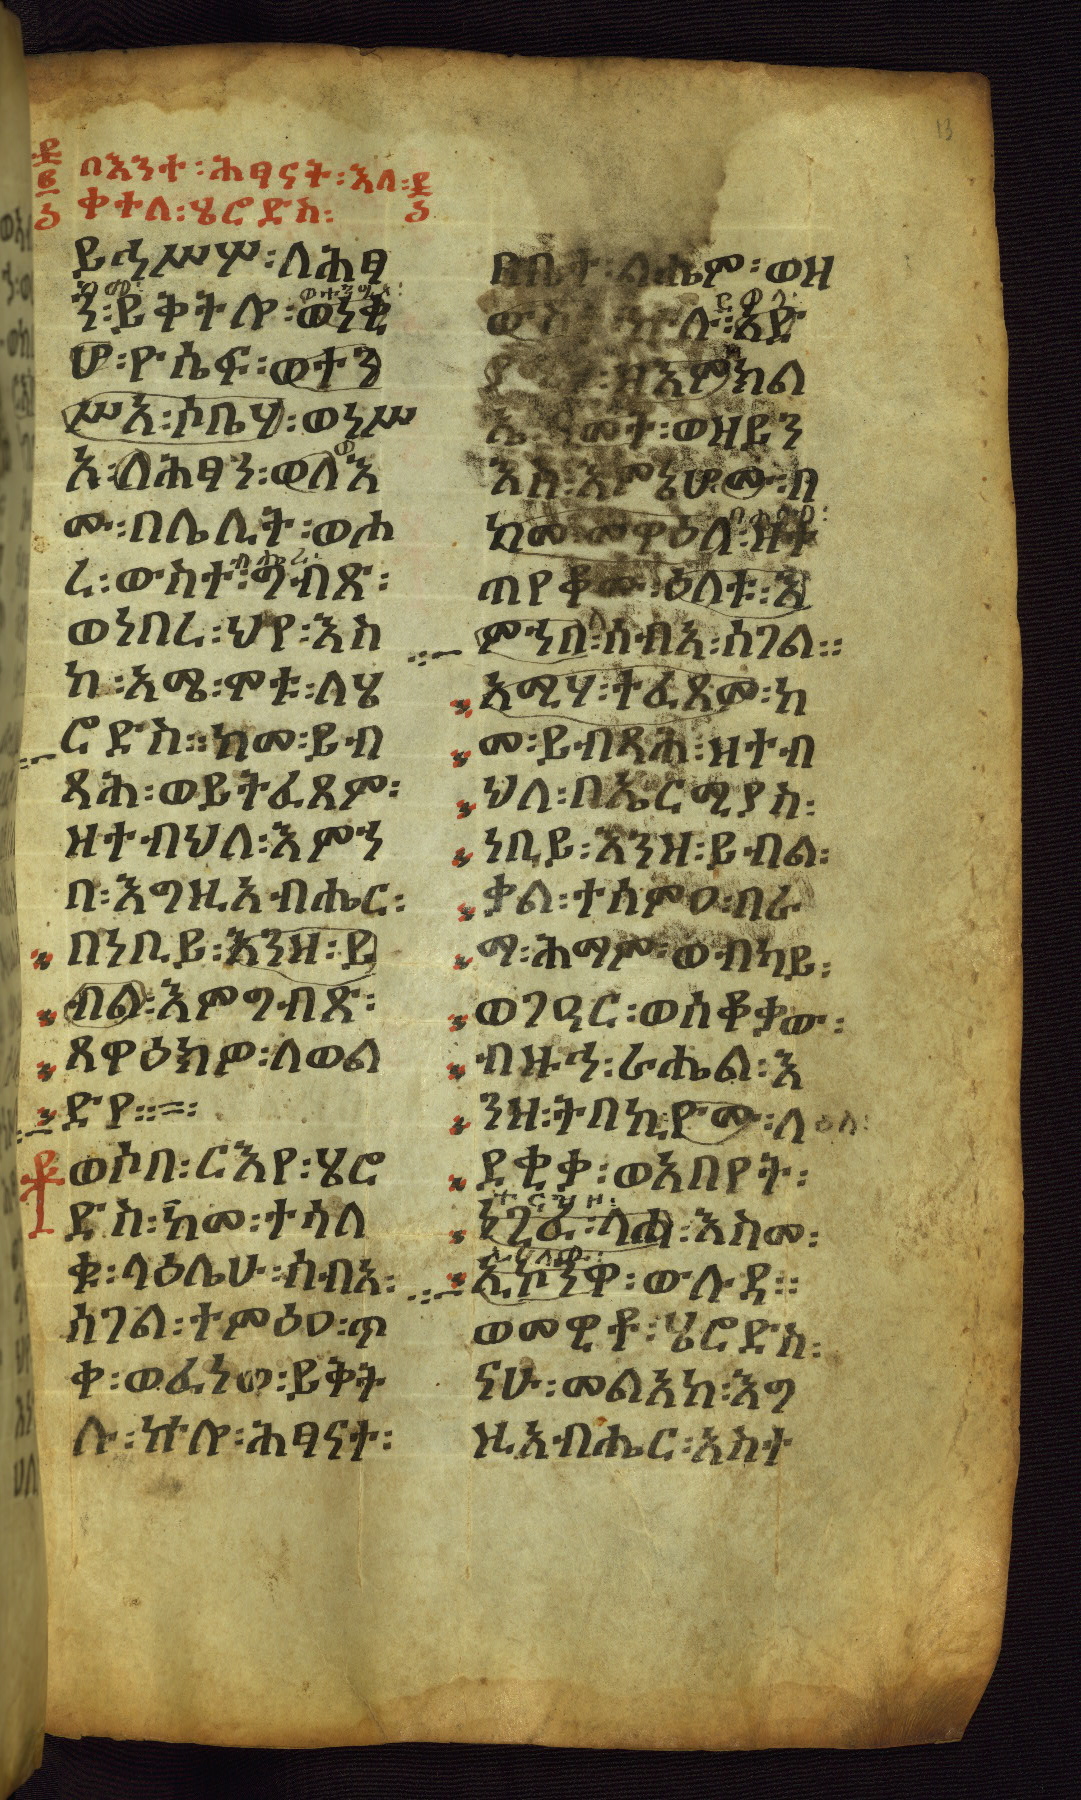 በእንተ፡ሕፃናት፡እለ፡
ቀተለ፡ሄሮድስ፡
ይኃሥሦ፡ለሕፃ
ን፡ይቅትሎ፡ወነቂ
ሆ፡ዮሴፍ፡ወተን
ሥአ፡ሶቤሃ፡ወነሥ
አ፡ለሕፃን፡ወለእ
ሙ፡በሌሊት፡ወሐ
ረ፡ውስተ፡ግብጽ፡
ወነበረ፡ህየ፡እስ
ከ፡አሜ፡ሞቱ፡ለሄ
ሮድስ፡፡ከመ፡ይብ
ጻሕ፡ወይትፈጸም፡
ዘተብህለ፡እምኀ
በ፡እግዚአብሔር፡
በነቢይ፡እንዘ፡ይ
ብል፡እምግብጽ፡
ጸዋዕክዎ፡ለወል
ድየ፡፡
ወሶበ፡ርእየ፡ሄሮ
ድስ፡ከመ፡ተሳለ
ቁ፡ላዕሌሁ፡ሰብአ፡
ሰገል፡ተምዕዐ፡ጥ
ቀ፡ወፈነወ፡ይቅት
ሉ፡ኵሎ፡ሕፃናተ፡
ዘቤተ፡ልሔም፡ወዘ
ውስተ፡ኵሉ፡አድ
ዘእምክል
ዓመት፡ወዘይን
እስ፡እምኔሆሙ፡በ
ከመ፡መዋዕል፡ዘተ
ጠየቆሙ፡ዕለተ፡እ
ምኀበ፡ሰብአ፡ሰገል፡፡
አሜሃ፡ተፈጸመ፡ከ
መ፡ይብጻሕ፡ዘተብ
ህለ፡በኤርሚያስ፡
ነቢይ፡እንዘ፡ይብል፡
ቃል፡ተሰምዐ፡በራ
ማ፡ሕማም፡ወብካይ፡
ወገዓር፡ወሰቆቃው፡
ብዙኃ፡ራሔል፡እ
ንዘ፡ትበኪዮሙ፡ለ
ደቂቃ፡ወአበየት፡
ኀጊፈ፡ላሐ፡እስመ፡
ኢኮንዋ፡ውሉዳ፡፡
ወመዊቶ፡ሄሮድስ፡
ናሁ፡መልአከ፡እግ
ዚአብሔር፡አስተ